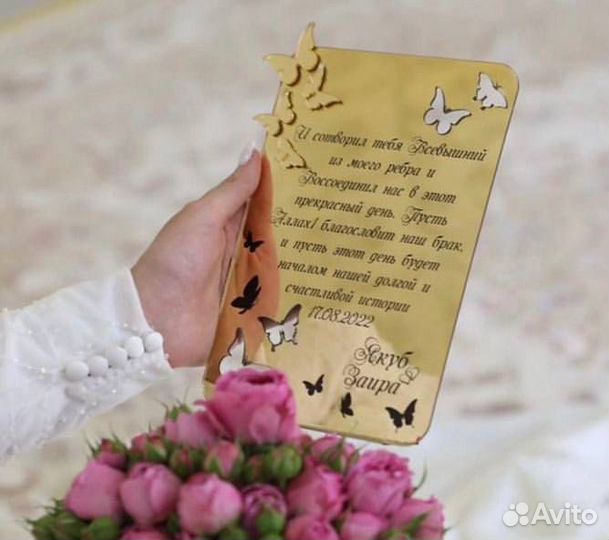 И сотворил тебя Всевышний
из моего ребра и
Воссоединил нас в этот
прекрасный день. Пусть
Аллах/ благословит наш брак,
и пусть этот день будет
началом нашей долгой и
счастливой истории
17.08.2022
Якуб
Заира
Avito